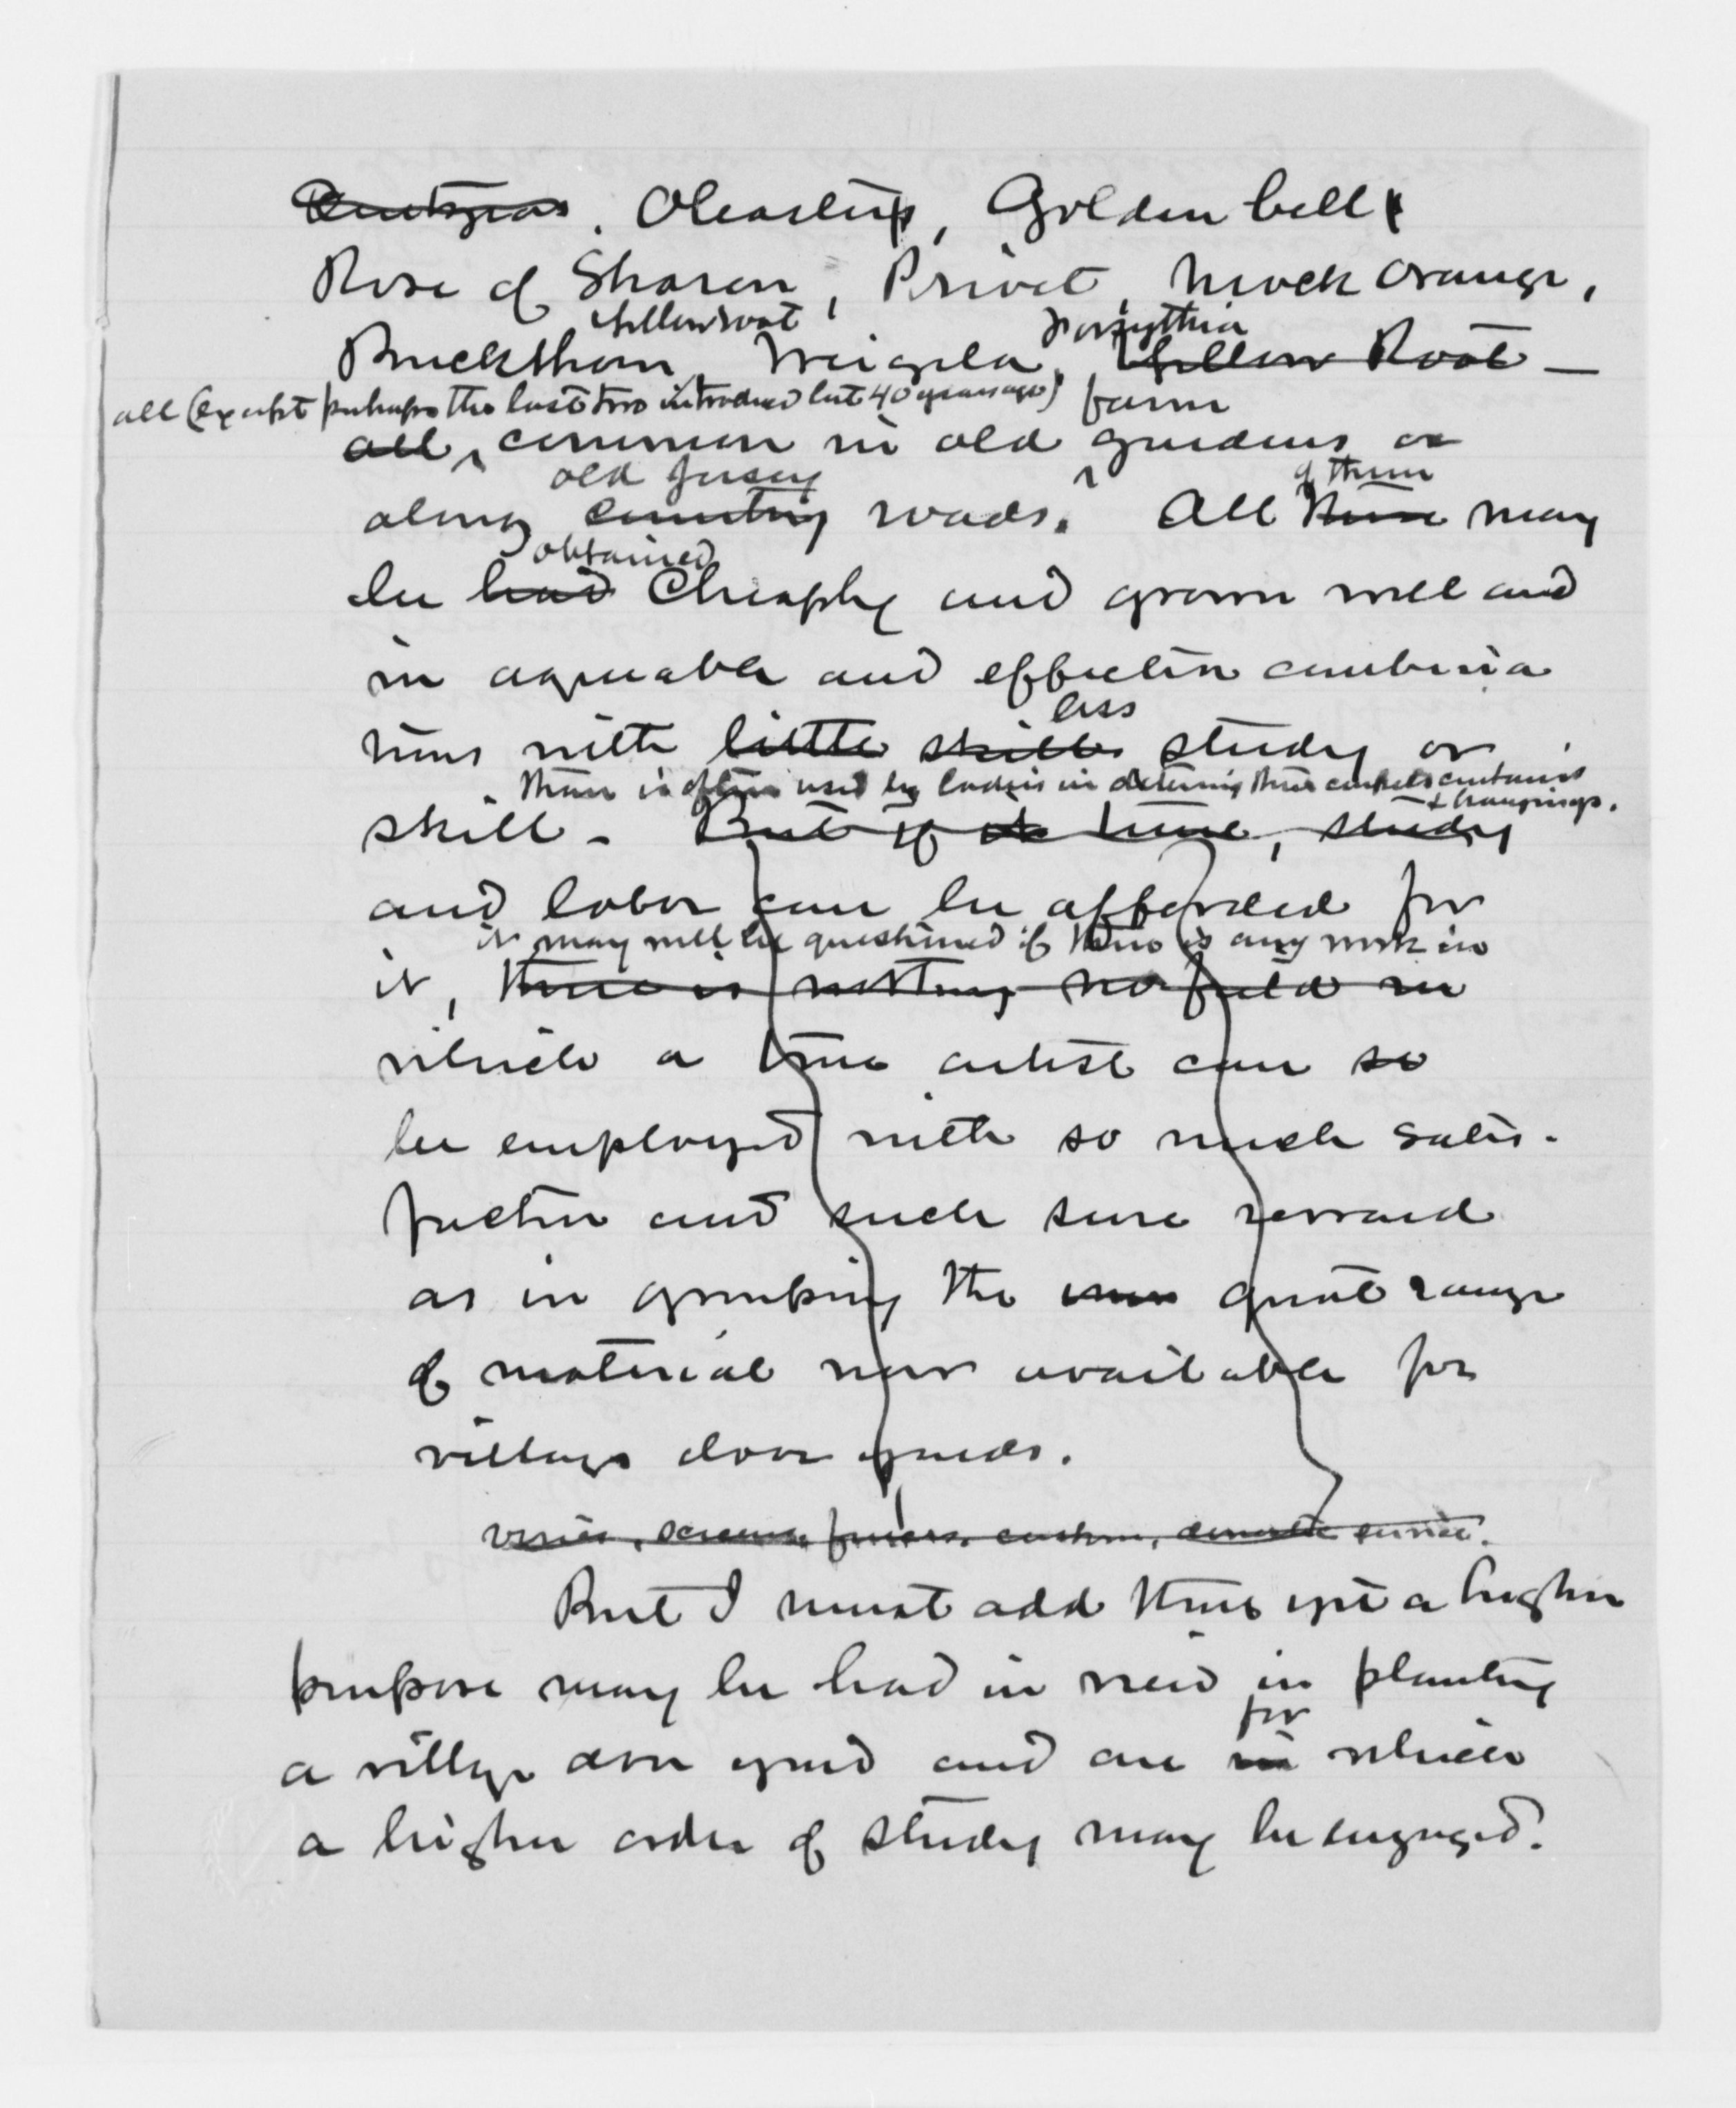 Deutzias. Oleaster, Golden bell
Rose of Sharon, Privet, Mock orange,
Yellowroot Forsythia
Buckthorn, Weigela, Yellow Root —
all (except perhaps the last two introduced but 40 years ago) farm
all, common in old gardens or
old Jersey of them
along country roads. All these may
obtained
be had Cheaply and grown well and
in agreeable and effective combina
less
tions with little skill study or
than is often used by ladies in determing their carpets curtains
& hangings.
skill - But if the time, study
and labor can be afforded for
it may well be questioned if there is any work in
it, there is nothing no field in
which a true artist can so
be employed with so much satis-
faction and such sure reward
as in grouping the great range
of material now available for
village door yards.
vines, screens, fences, custom, domestic service.
But I must add there yet a higher
purpose may be had in view in planting
for
a village door yard and one in which
a higher order of study may be engaged.